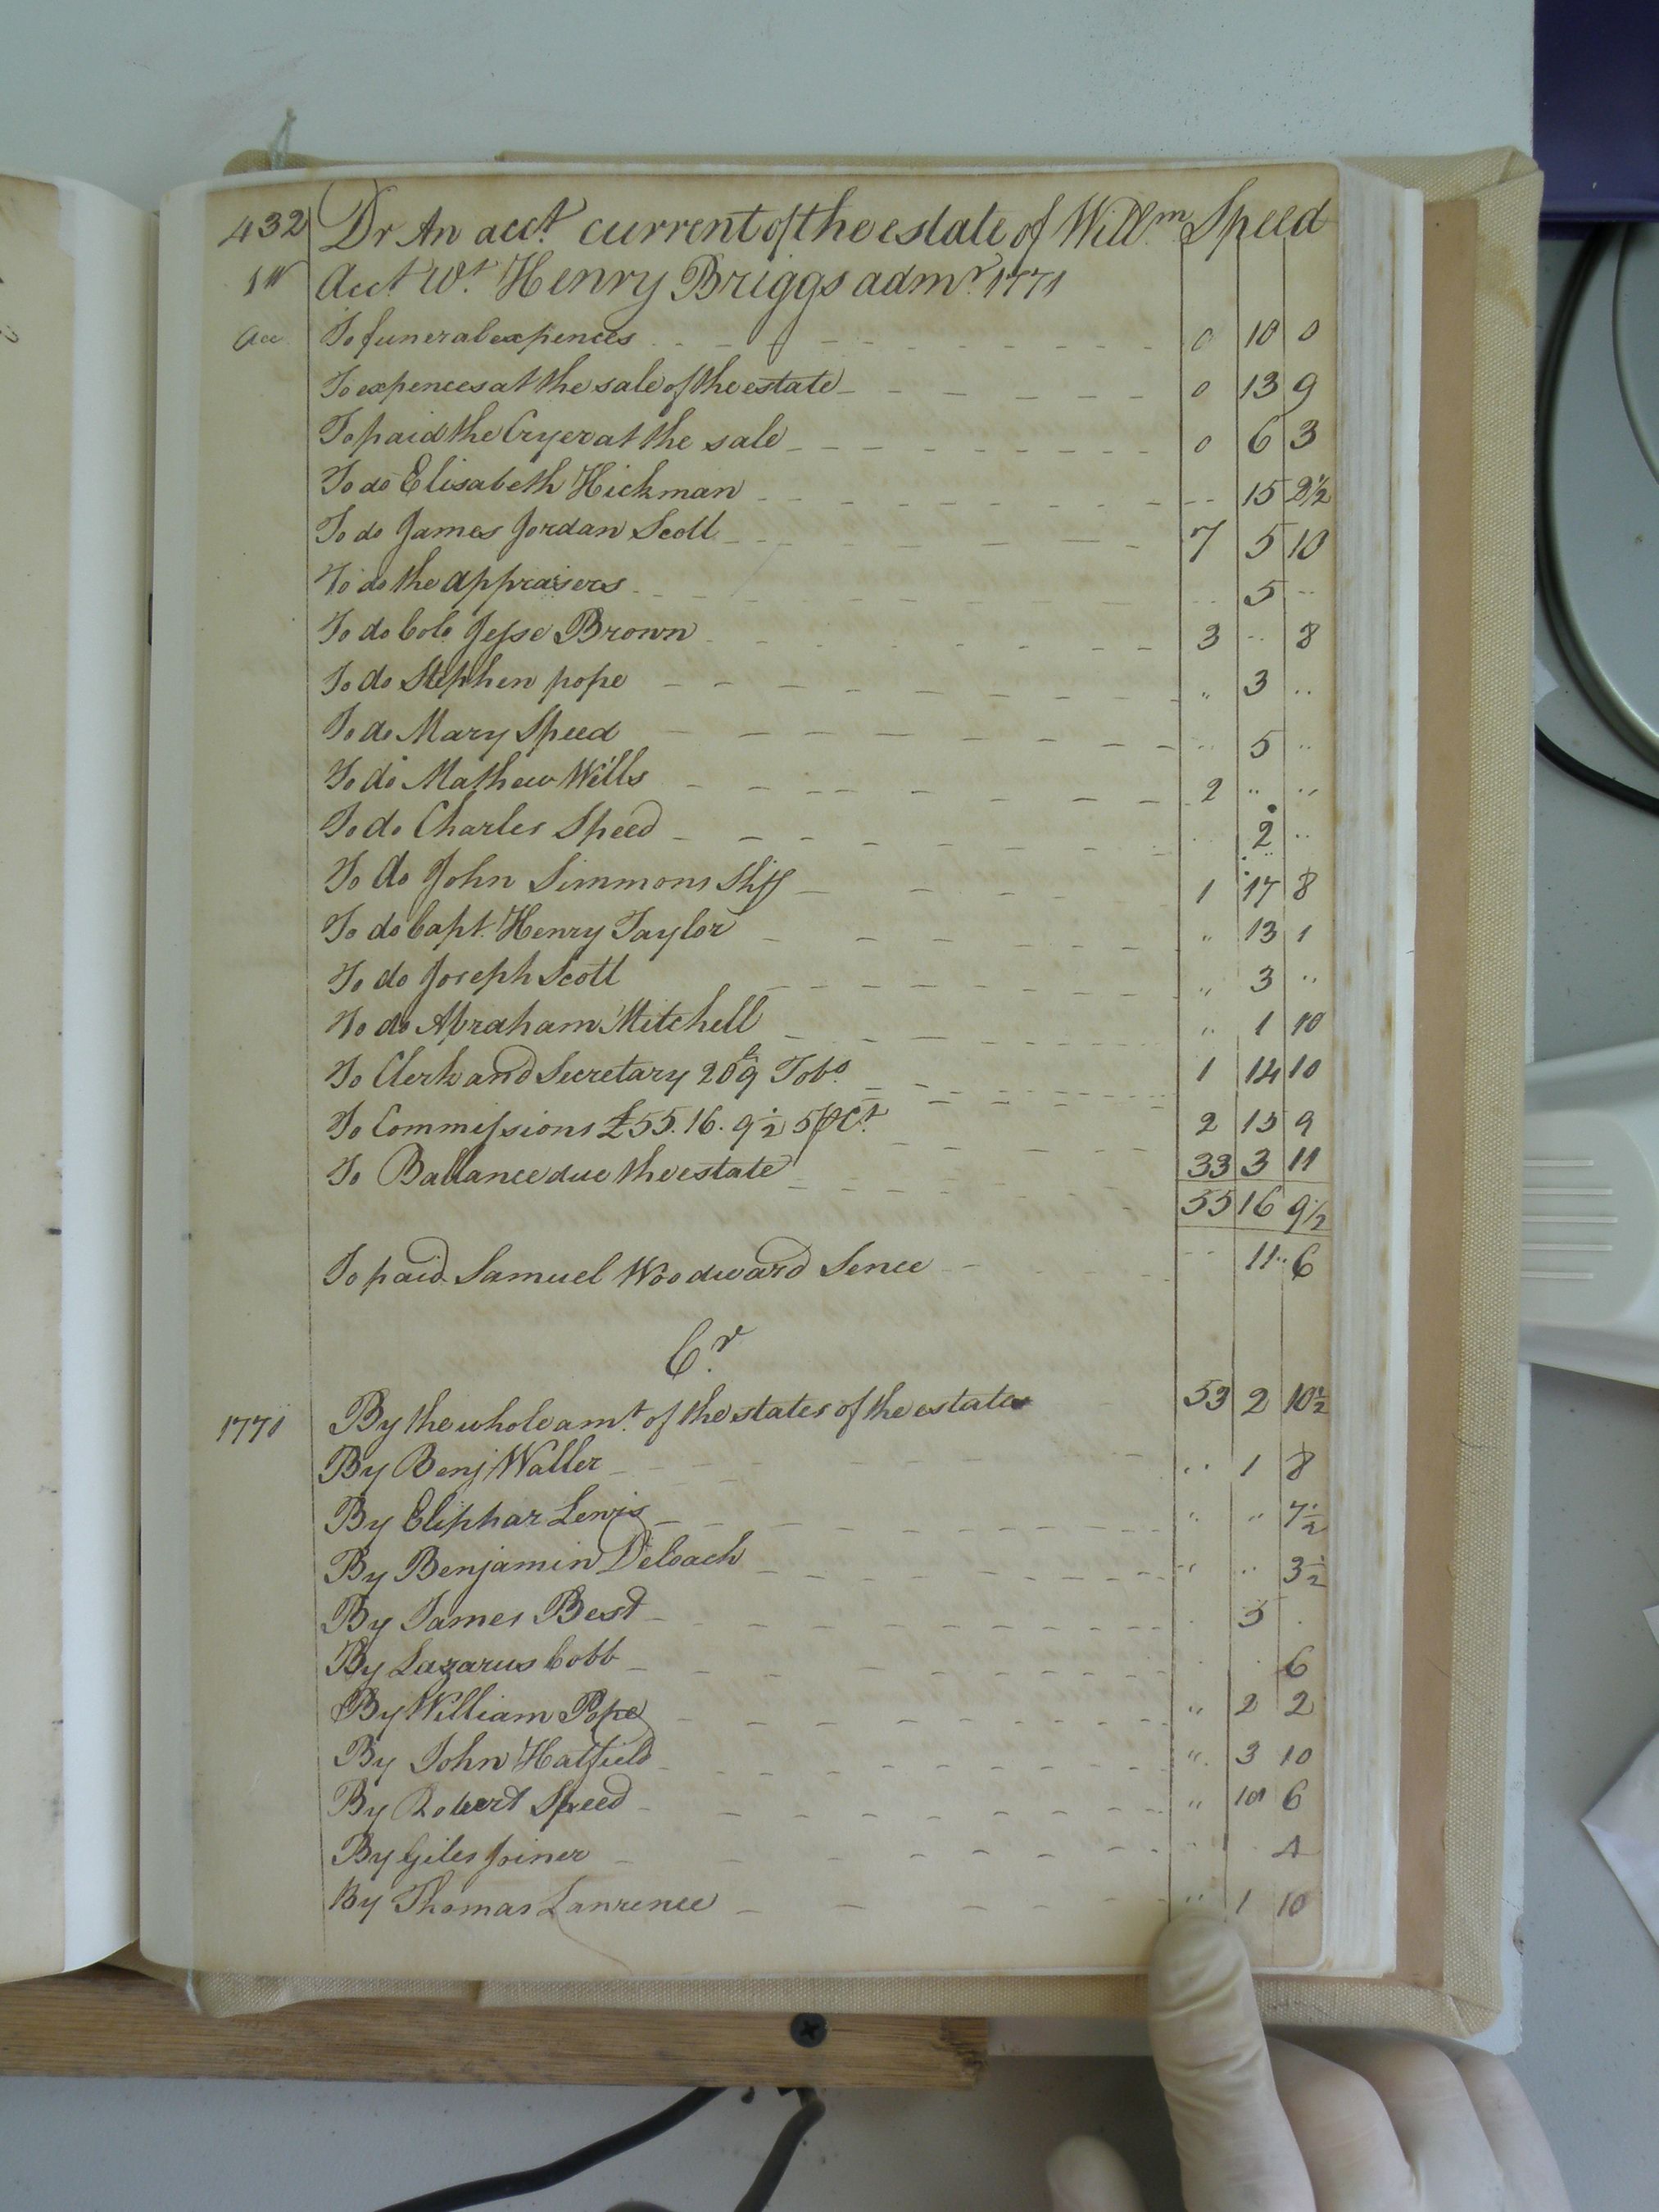 432 Dr An acct. current of the estate of Willm. Speed
1st Acct. Wt. Henry Briggs admr. 1771
Acc To funeral expences 0 10 0
To expences at the sale of the estate 0 13 9
To paid the Cryer at the sale 0 6 3
To do Elisabeth Hickman 15 2½
To do James Jordan Scott 7 5 10
To do the appraisers .. 5 ..
To do Colo. Jesse Brown 3 .. 8
To do Stephen pope " 3 ..
To do Mary Speed .. 5 ..
To do Mathew Wills 2 .. ..
To do Charles Speed 2 ..
To do John Simmons Shff 1 17 8
To do Capt. Henry Taylor " 13 1
To do Joseph Scott " 3 ..
To do Abraham Mitchell " 1 10
To Clerk and Secretary 209 Tobo. 1 14 10
To Commissions £55.16.9½ 5 P Ct. 2 15 9
To Ballance due the estate 33 3 11
55 16 9½
To paid Samuel Woodward Sence 11 6
Cr.
1771 By the whole amt. of the states of the estates 53 2 10½
By Benj Waller .. 1 8
By Eliphar Lewis " " 7½
By Benjamin Deloach " .. 3½
By James Best 5
By Lazarus Cobb 6
By William Pope " 2 2
By John Hatfield " 3 10
By Robert Speed " 10 6
By Giles Joiner 4
By Thomas Lanrence " 1 10